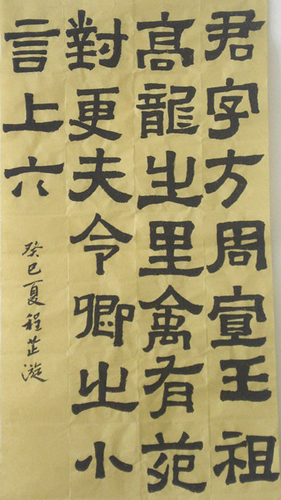 君字方周宣王祖
高龍之里禽有苑
對更夫令卿之小
言上六
癸巳夏程芷漩